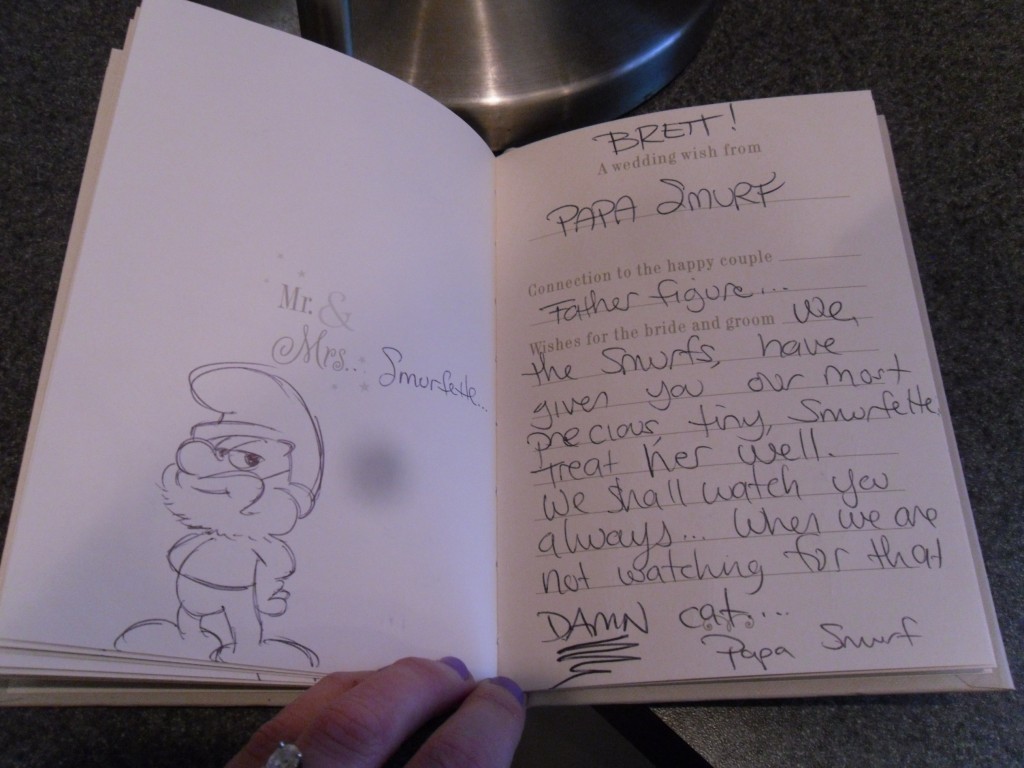 Mr. &
Mrs... Smurfette...
BRETT!
A wedding wish from
PAPA SMURF
Connection to the happy couple
Father figure...
Wishes for the bride and groom We,
the Smurfs, have
given you our most
precious, tiny, Smurfette,
treat her well.
We shall watch you
always... When we are
not watching for that
DAMN cat....
Papa Smurf